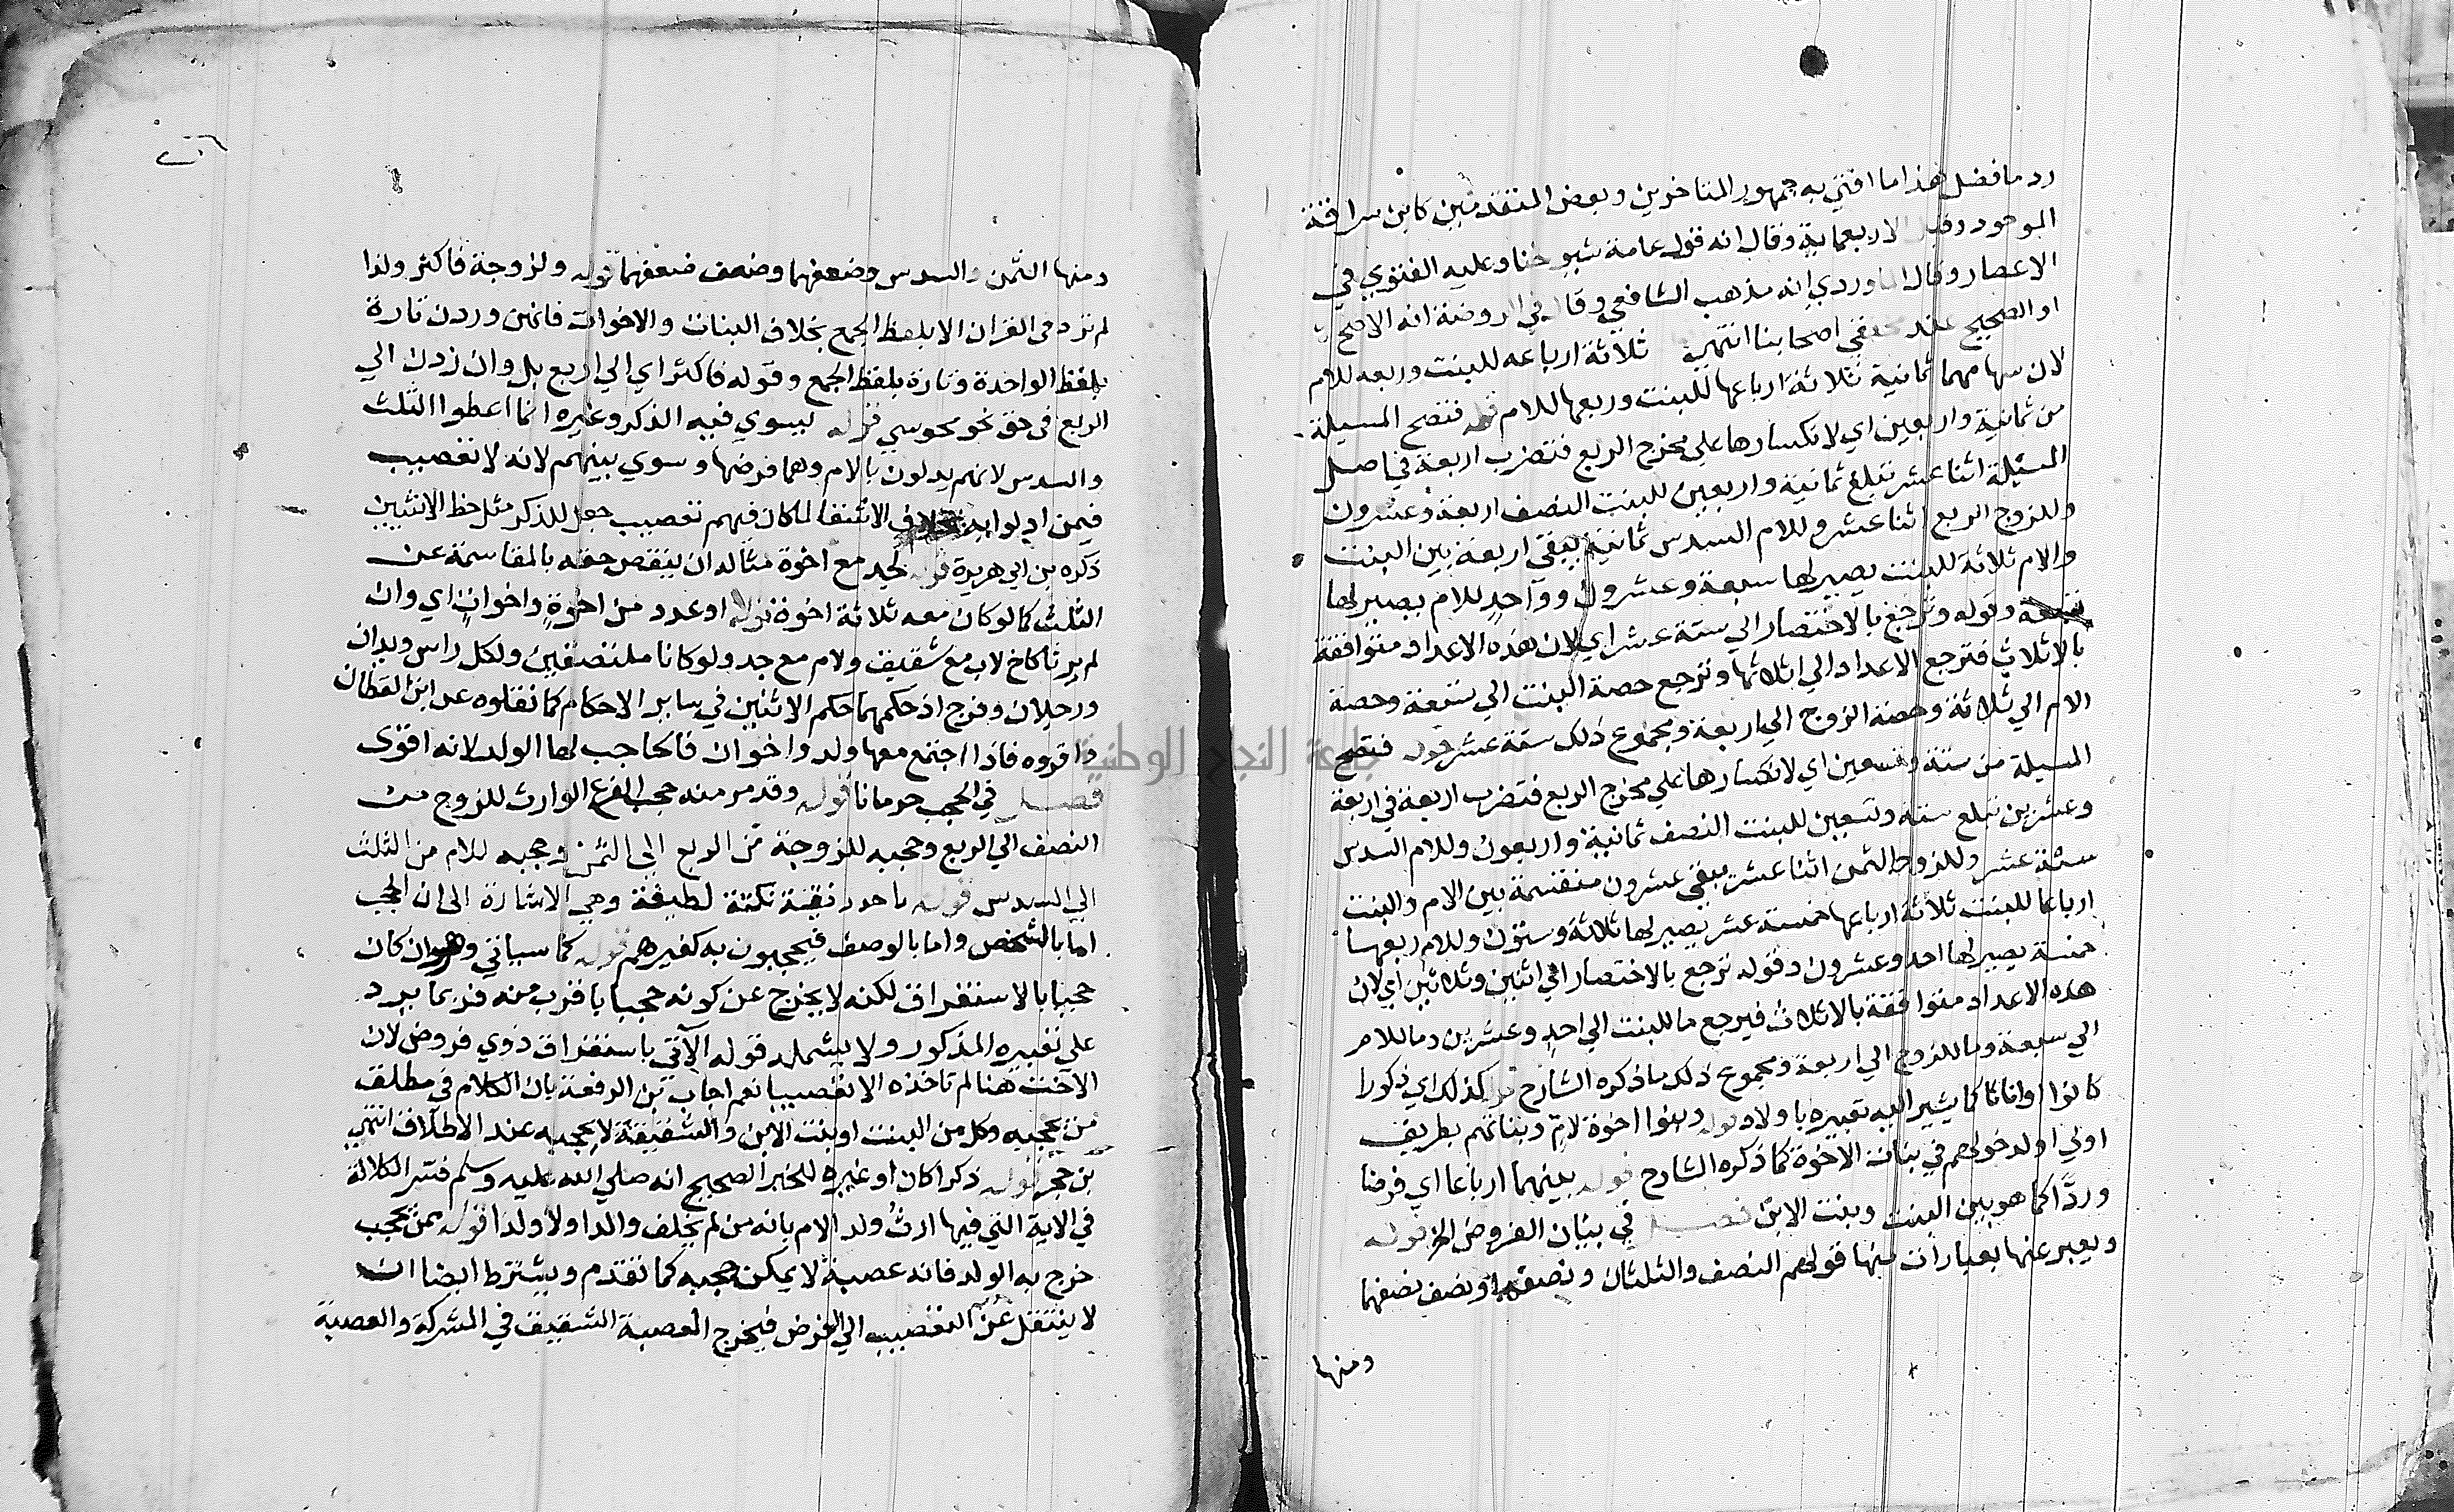 رد ما فضل هذا ما افتي به جمهور المتاخرين وبعض المتقدمين كابن سراقة
الموجود وقبل الاربعماية وقال انه قول عامة شيوخنا وعليه الفتوي في
الاعصار وقال الماوردي انه مذهب الشافعي وقال في الروضة انه الاصح
او الصحيح عند محققي اصحابنا انتهي ثلاثة ارباعه للبنت وربعه للام
لان سهامهما ثمانية ثلاثة ارباعها للبنت وربعها للام قوله فتصح المسيلة
من ثمانية واربعين اي لانكسارها علي مخرج الربع فتضرب اربعة في اصل
المسئيلة اثنا عشر تبلغ ثمانية واربعين للبنت النصف اربعة وعشرون
وللزوج الربع اثنا عشر وللام السدس ثمانية يبقي اربعة بين البنت
والام ثلاثة للبنت يصير لها سبعة وعشرون وواحد للام يصير لها
تسعة وقوله وترجع بالاختصار الي ستة عشر اي لان هذه الاعداد متوافقة
بالاثلاث فترجع الاعداد الي اثلاثها وترجع حصة البنت الي تسعة وحصة
الام الي ثلاثة وحصة الزوج الي اربعة ومجموع ذلك ستة عشر قوله فتصح
المسيلة من ستة وتسعين اي لانكسارها علي مخرج الربع فتضرب اربعة في اربعة
وعشرين تبلغ ستة وتسعين للبنت النصف ثمانية واربعون وللام السدس
ستة عشر وللزوجة الثمن اثنا عشر يبقي عشرون منقسمة بين الام والبنت
ارباعا للبنت ثلاثة ارباعها خمسة عشر يصير لها ثلاثة وستون وللام ربعها
خمسة يصير لها احد وعشرون وقوله ترجع بالاختصار الي اثنين وثلاثين اي لان
هذه الاعداد متوافقة بالاثلاث فيرجع ما للبنت الي احد وعشرين وما للام
الي سبعة وما للزوج الي اربعة ومجموع ذلك ما ذكره الشارح قوله كذلك اي ذكورا
كانوا او اناثا كما يشير اليه تعبيره باولاد قوله وبنوا اخوة لام وبناتهم بطريق
اولي او لدخولهم في بنات الاخوة كما ذكره الشارح قوله بينهما ارباعا اي فرضا
وردّا كما هو بين البنت وبنت الابن فصل في بيان الفروض الخ قوله
ويعبر عنها بعبارات منها قولهم النصف والثلثان ونصفهما ونصف نصفهما
ومنها
ومنها الثمن والسدس وضعفهما وضعف ضعفهما قوله ولزوجة فاكثر ولذا
لم ترد في القران الا بلفظ الجمع بخلاف البنات والاخوات فانهن وردن تارة
بلفظ الواحدة وتارة بلفظ الجمع وقوله فاكثر اي الي اربع بل وان زدن الي
الربع في حق نحو مجوسي قوله يسوي فيه الذكر وغيره انما اعطوا الثلث
والسدس لانهم يدلون بالام وهما فرضها وسوي بينهم لانه لا تعصيب
فيمن ادلوا به بخلاف الاشقا لما كان فيهم تعصيب جعل للذكر مثل حظ الانثيين
ذكره بن ابي هريرة قوله لجد مع اخوة مثاله ان ينقص حقه بالمقاسمة عن
الثلث كما لو كان معه ثلاثة اخوة قوله او عدد من اخوة واخوات اي وان
لم يرثا كاخ لاب مع شقيق ولام مع جد ولو كانا ملتصقين ولكل راس ويدان
ورجلان وفرج اذ حكمهما حكم الاثنين في ساير الاحكام كما نقلوه عن ابن القطان
واقروه فاذا اجتمع معها ولد واخوان فالحاجب لها الولد لانه اقوى
فصل في الحجب حرمانا قوله وقد مر منه حجب الفرع الوارث للزوج من
النصف الي الربع وحجبه للزوجة من الربع الي الثمن وحجبه للام من الثلث
الي السدس قوله نكتة لطيفة وهي الاشارة الى ان الحجب
اما بالشخص واما بالوصف فيحجبون به كغيرهم قوله كما سياتي وهو ان كان
حجبا بالاستغراق لكنه لا يخرج عن كونه حجبا باقرب منه فربما يرد
علي تعبيره المذكور ولا يشمله قوله الآتي باستغراق ذوي فروض لان
الاخت هنا لم تاخذه الا تعصيبا نعم اجاب بن الرفعة بان الكلام في مطلق
من يحجبه وكل من البنت او بنت الابن والشقيقة لا يحجبه عند الاطلاق انتهي
بن حجر قوله ذكرا كان او غيره للخبر الصحيح انه صلي الله عليه وسلم فسر الكلالة
في الاية التي فيها ارث ولد الام بانه من لم يخلف والدا ولا ولدا قوله بمن يحجب
خرج به الولد فانه عصبة لا يمكن حجبه كما تقدم ويشترط ايضا ان
لا ينتقل عن التعصيب الي الفرض فيخرج العصبة الشقيق في المشركة والعصبة
جامعة النجاح الوطنية